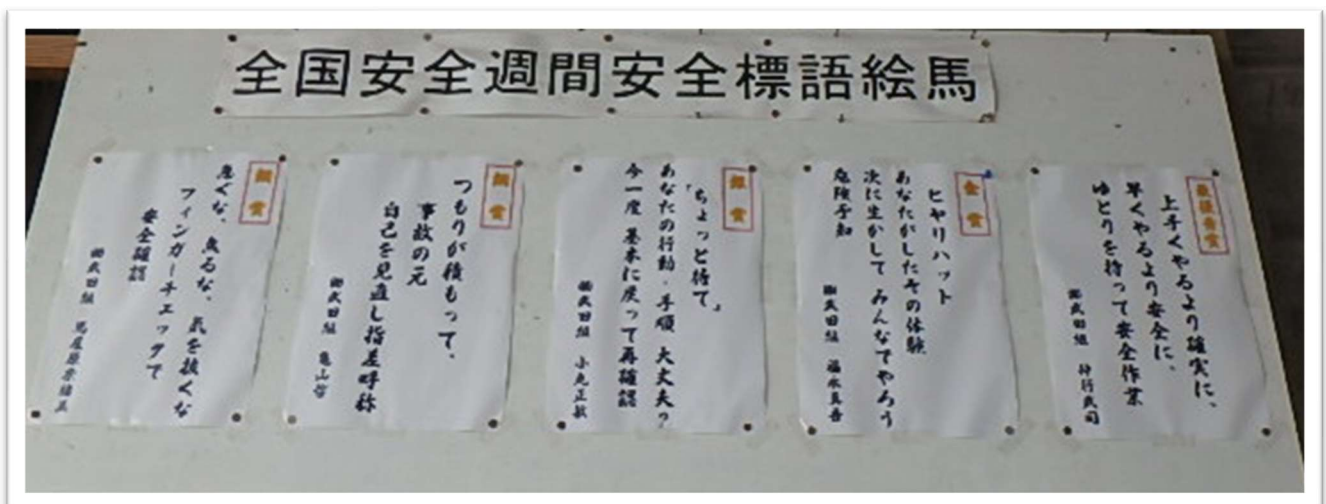 全国安全週間安全標語絵馬
最優秀賞
上手くやるより確実に、
早くやるより安全に、
ゆとりを持って安全作業
㈱武田組 神行武司
金賞
ヒヤリハット
あなたがしたその体験
次に生かして みんなでやろう
危険予知
㈱武田組 福永真吾
銀賞
「ちょっと待て」
あなたの行動・手順 大丈夫?
今一度 基本に戻って再確認
㈱武田組 小丸正敏
銅賞
つもりが積もって、
事故の元
自己を見直し指差呼称
㈱武田組 亀山
銅賞
急ぐな、焦るな、気を抜くな
フィンガーチェックで
安全確認
㈱武田組